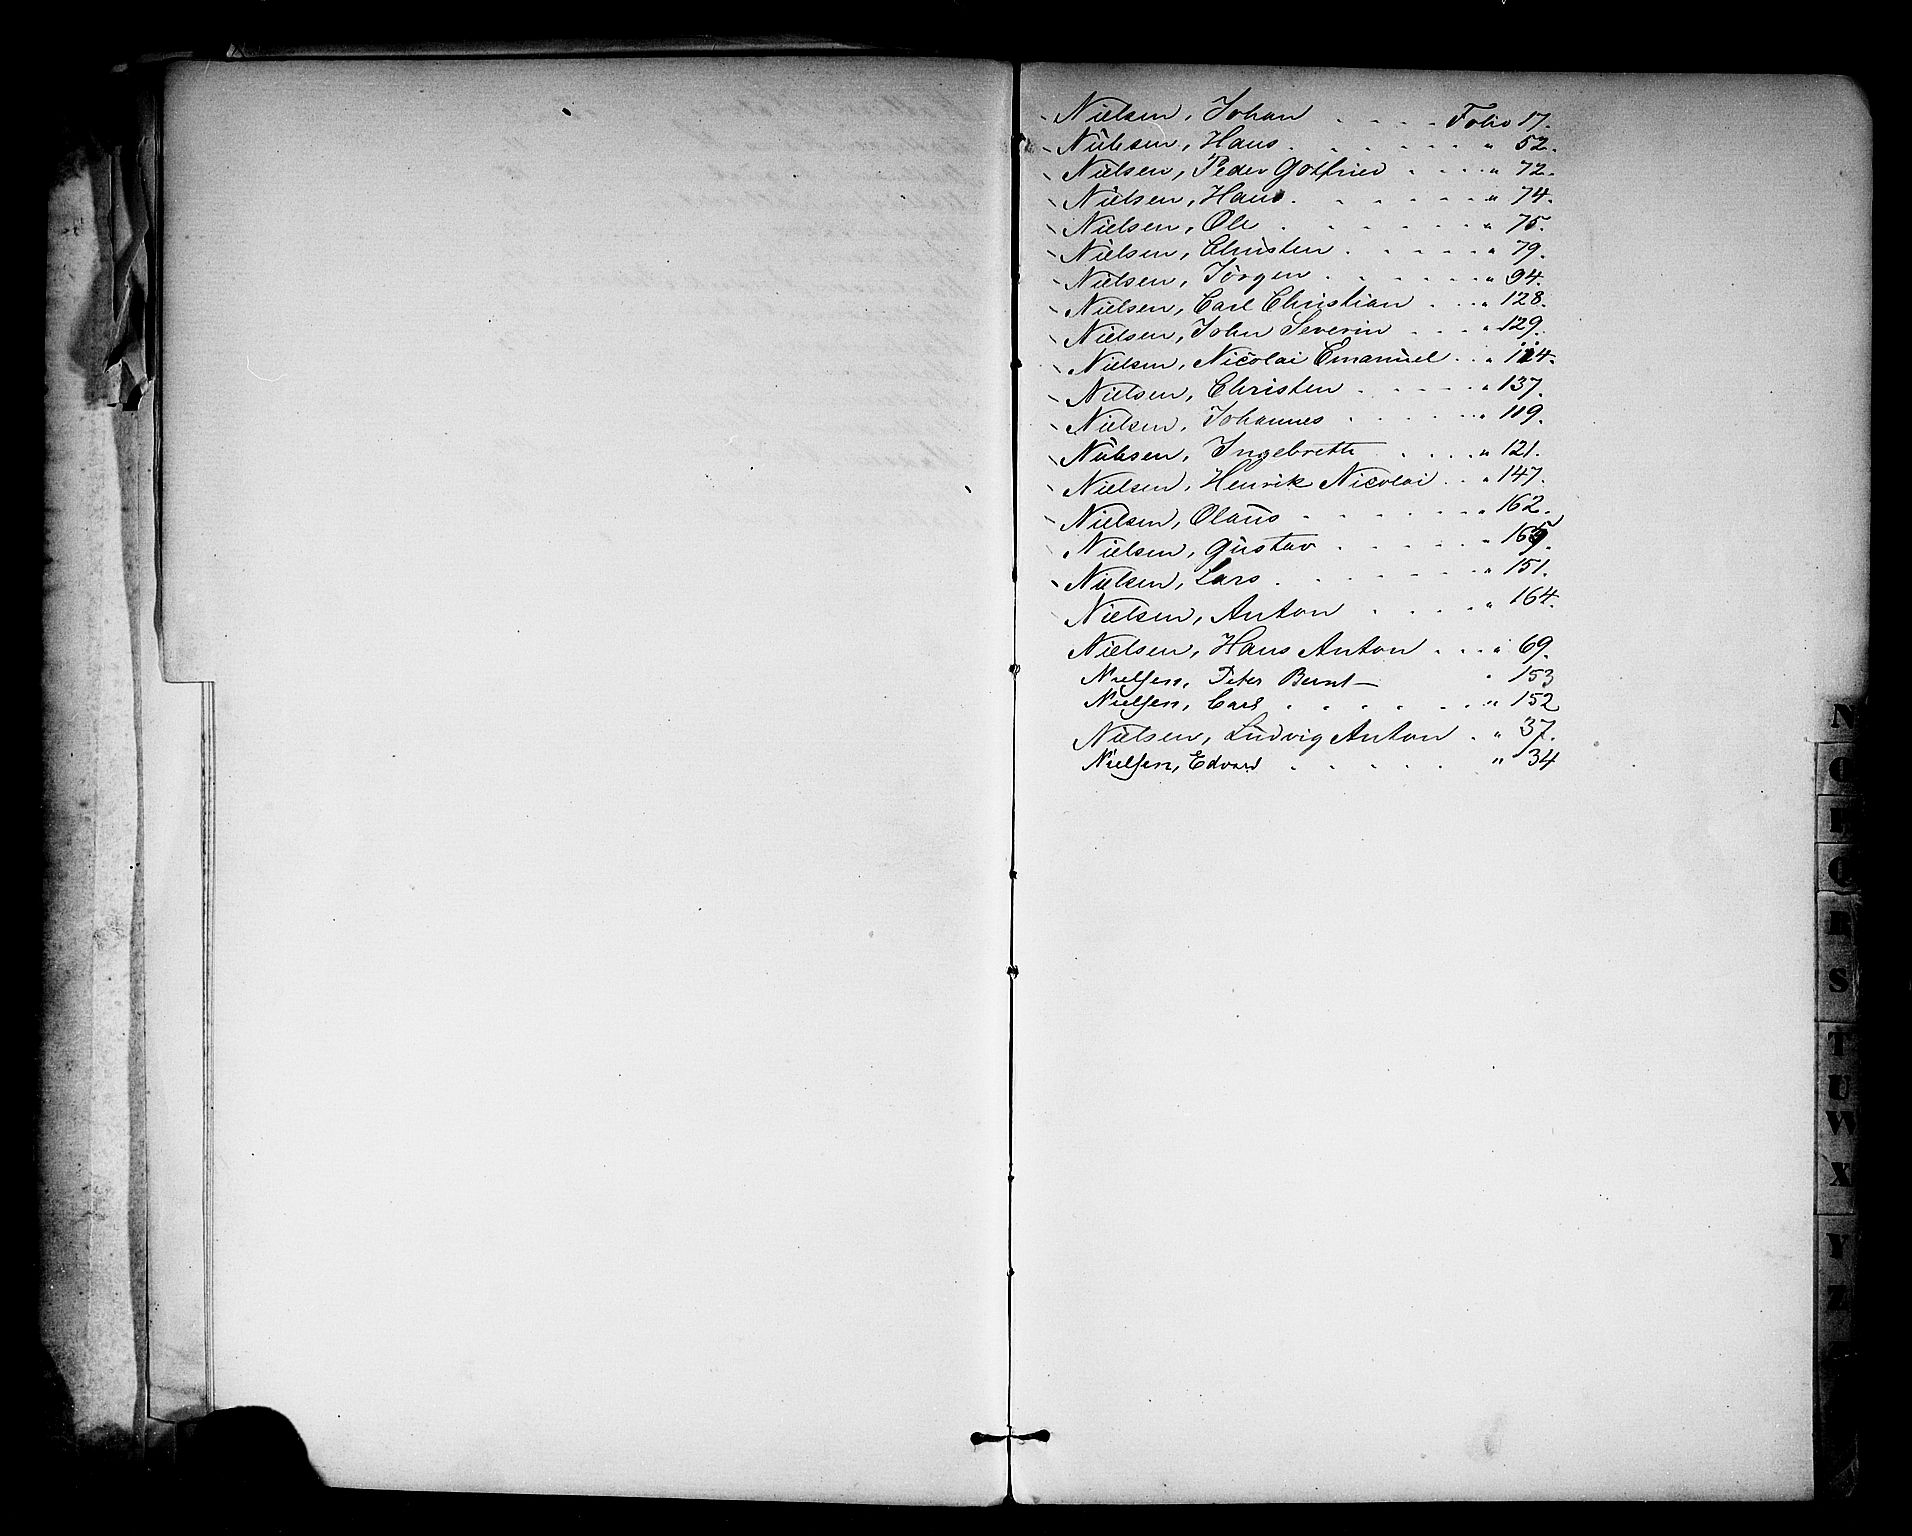 Nielsen, Johan . . . . Folio 17.
Nielsen, Hans . . . . . " 52.
Nielsen, Peder Gotfried . . . . " 72.
Nielsen, Hans . . . . . " 74.
Nielsen, Ole . . . . . " 75.
Nielsen, Christen . . . . . " 79.
Nielsen, Jörgen . . . . . " 94.
Nielsen, Carl Christian . . . " 128.
Nielsen, John Severin . . . " 129.
Nielsen, Nicolai Emanuel . . " 114.
Nielsen, Christen . . . . . " 137.
Nielsen, Johannes . . . . . " 119.
Nielsen, Ingebreth . . . . " 121.
Nielsen, Henrik Nicolai . . " 147.
Nielsen, Olaus . . . . . " 162.
Nielsen, Gustav . . . . . "
Nielsen, Lars . . . . . " 151.
Nielsen, Anton . . . . " 164.
Nielsen, Hans Anton . . . " 69.
Nielsen, Peter Bernt — " 153
Nielsen, Carl . . . . . " 152
Nielsen, Ludvig Anton . " 37.
Nielsen, Edvard . . . . " 34
N
O
P
Q
R
S
T
U
W
X
Y
Z